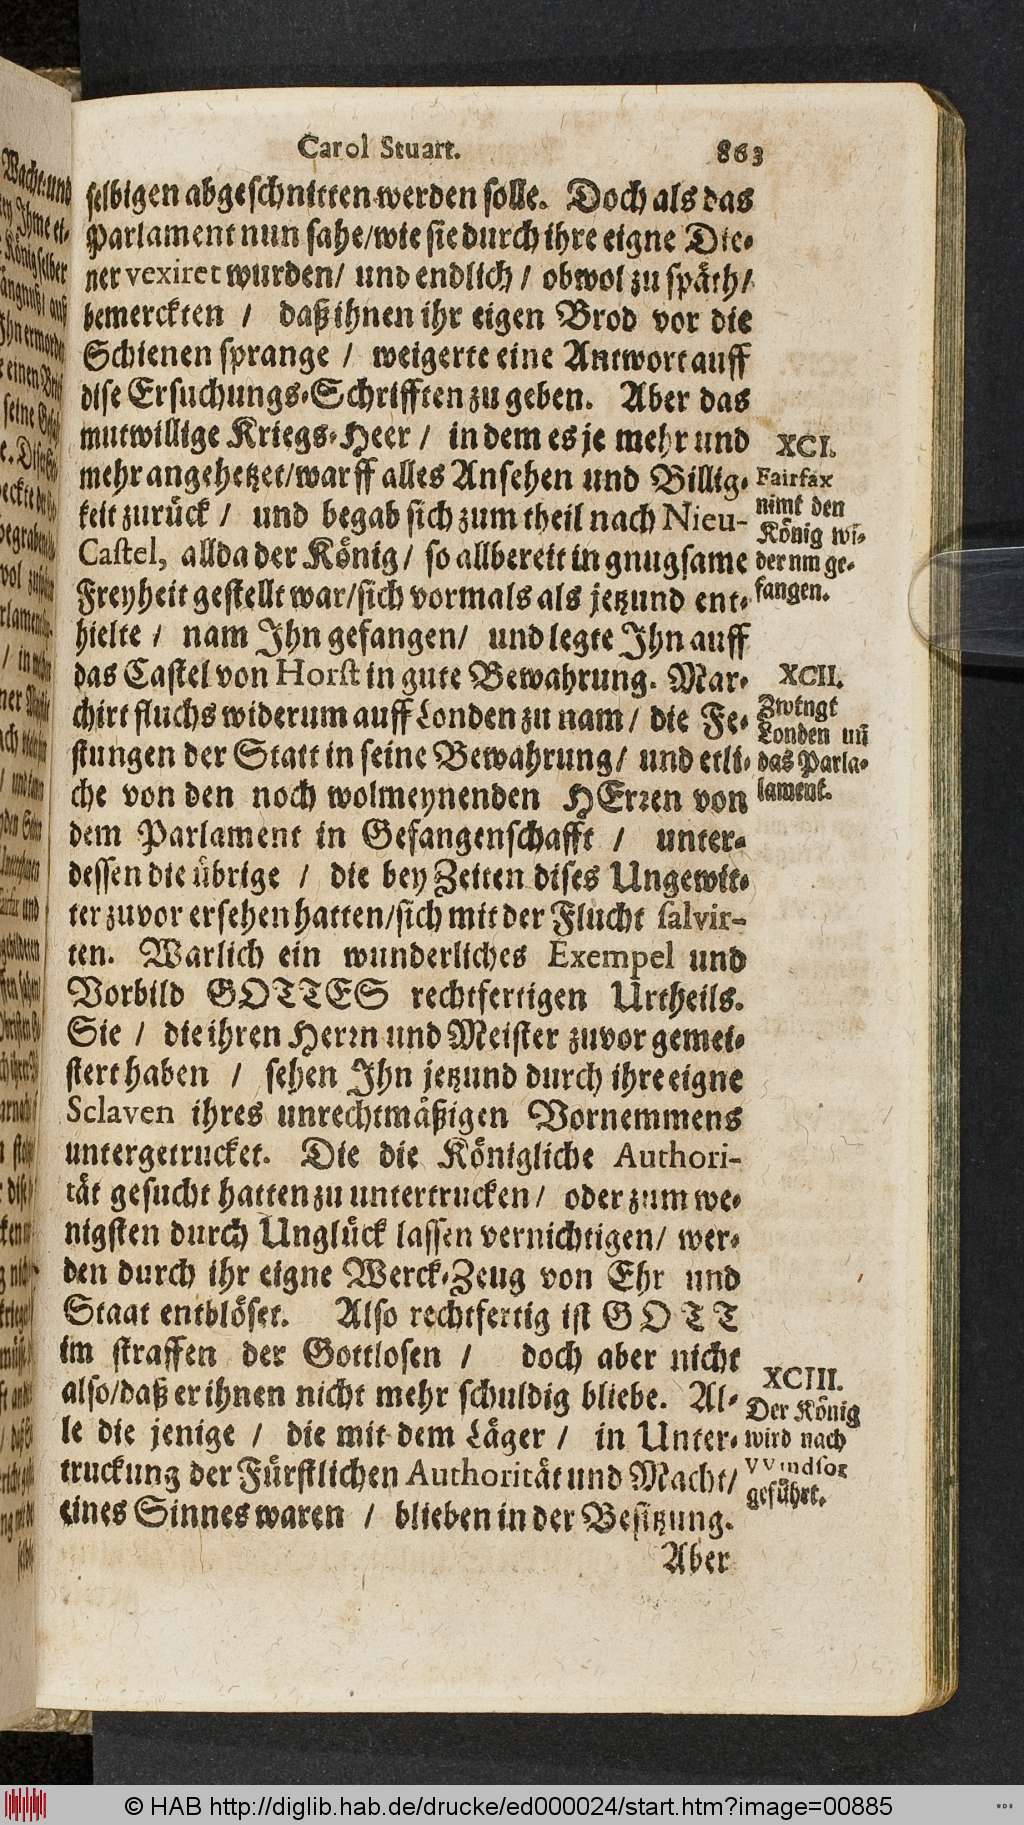 Carol Stuart. 863
selbigen abgeschnitten werden solle. Doch als das
Parlament nun sahe/wie sie durch ihre eigne Die-
ner vexiret wurden/ und endlich / obwol zu späth/
bemerckten / daß ihnen ihr eigen Brod vor die
Schienen sprange / weigerte eine Antwort auff
dise Ersuchungs-Schrifften zu geben. Aber das
mutwillige Kriegs-Heer / in dem es je mehr und
mehr angehetzet/warff alles Ansehen und Billig-
keit zurück / und begab sich zum theil nach Nieu-
Castel, allda der König / so allbereit in gnugsame
Freyheit gestellt war/sich vormals als jetzund ent-
hielte / nam Ihn gefangen/ und legte Ihn auff
das Castel von Horst in gute Bewahrung. Mar-
chirt fluchs widerum auff Londen zu nam / die Fe-
stungen der Statt in seine Bewahrung/ und etli-
che von den noch wolmeynenden HErren von
dem Parlament in Gefangenschafft / unter-
dessen die übrige / die bey Zeiten dises Ungewit-
ter zuvor ersehen hatten/sich mit der Flucht salvir-
ten. Warlich ein wunderliches Exempel und
Vorbild GOTTES rechtfertigen Urtheils.
Sie / die ihren Herrn und Meister zuvor gemei-
stert haben / sehen Ihn jetzund durch ihre eigne
Sclaven ihres unrechtmäßigen Vornemmens
untergetrucket. Die die Königliche Authori-
tät gesucht hatten zu untertrucken / oder zum we-
nigsten durch Unglück lassen vernichtigen/ wer-
den durch ihr eigne Werck-Zeug von Ehr und
Staat entblöset. Also rechtfertig ist GOTT
im straffen der Gottlosen / doch aber nicht
also/daß er ihnen nicht mehr schuldig bliebe. Al-
le die jenige / die mit dem Läger / in Unter-
truckung der Fürstlichen Authorität und Macht/
eines Sinnes waren / blieben in der Besitzung.
Aber
XCI.
Fairfax
nimt den
König wi-
derum ge-
fangen.
XCII.
Zwingt
Londen uñ
das Parla-
lament.
XCIII.
Der König
wird nach
VVindsor
geführt.
© HAB http://diglib.hab.de/drucke/ed000024/start.htm?image=00885